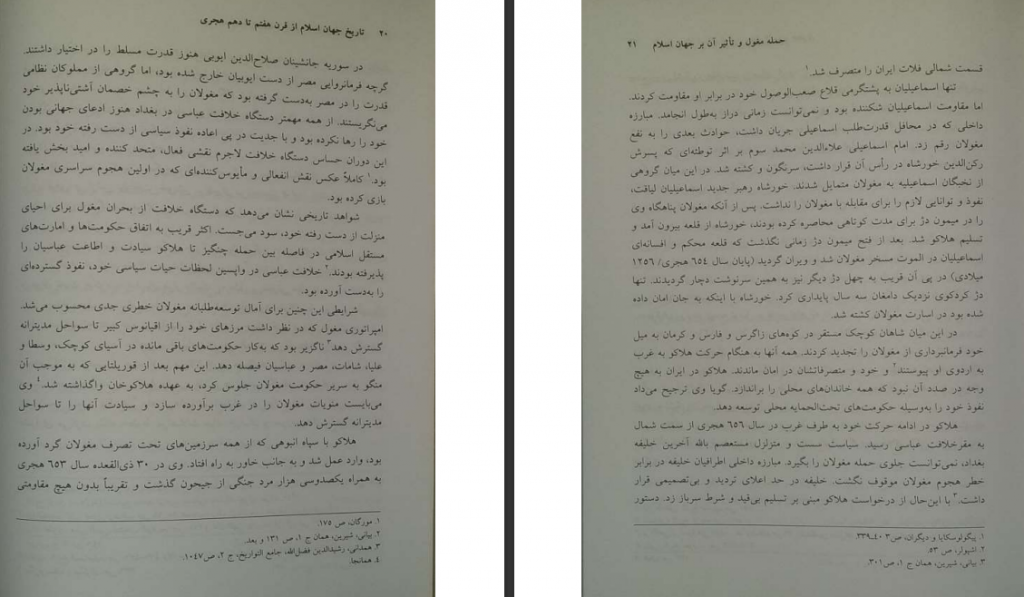 ۲۰ تاریخ جهان اسلام از قرن هفتم تا دهم هجری
در سوریه جانشینان صلاح‌الدین ایوبی هنوز قدرت مسلط را در اختیار داشتند.
گرچه فرمانروایی مصر از دست ایوبیان خارج شده بود، اما گروهی از مملوکان نظامی
قدرت را در مصر به‌دست گرفته بود که مغولان را به چشم خصمان آشتی‌ناپذیر خود
می‌نگریستند. از همه مهمتر دستگاه خلافت عباسی در بغداد هنوز ادعای جهانی بودن
خود را رها نکرده بود و با جدیت در پی اعاده نفوذ سیاسی از دست رفته خود بود. در
این دوران حساس دستگاه خلافت لاجرم نقشی فعال، متحد کننده و امید بخش یافته
بود.۱ کاملاً عکس نقش انفعالی و مأیوس‌کننده‌ای که در اولین هجوم سراسری مغولان
بازی کرده بود.
شواهد تاریخی نشان می‌دهد که دستگاه خلافت از بحران مغول برای احیای
منزلت از دست رفته خود، سود می‌جست. اکثر قریب به اتفاق حکومت‌ها و امارت‌های
مستقل اسلامی در فاصله بین حمله چنگیز تا هلاکو سیادت و اطاعت عباسیان را
پذیرفته بودند.۲ خلافت عباسی در واپسین لحظات حیات سیاسی خود، نفوذ گسترده‌ای
را به‌دست آورده بود.
شرایطی این چنین برای آمال توسعه‌طلبانه مغولان خطری جدی محسوب می‌شد.
امپراتوری مغول که در نظر داشت مرزهای خود را از اقیانوس کبیر تا سواحل مدیترانه
گسترش دهد۳ ناگزیر بود که به‌کار حکومت‌های باقی مانده در آسیای کوچک، وسطا و
علیا، شامات، مصر و عباسیان فیصله دهد. این مهم بعد از قوریلتایی که به موجب آن
منگو به سریر حکومت مغولان جلوس کرد، به عهده هلاکوخان واگذاشته شد.۴ وی
می‌بایست منویات مغولان را در غرب برآورده سازد و سیادت آنها را تا سواحل
مدیترانه گسترش دهد.
هلاکو با سپاه انبوهی که از همه سرزمین‌های تحت تصرف مغولان گرد آورده
بود، وارد عمل شد و به جانب خاور به راه افتاد. وی در ۳۰ ذی‌القعده سال ۶۵۳ هجری
به همراه یکصدوسی هزار مرد جنگی از جیحون گذشت و تقریباً بدون هیچ مقاومتی
۱. مورگان، ص ۱۷۵.
۲. بیانی، شیرین، همان ج ۱، ص ۱۳۱ و بعد.
۳. همدانی، رشیدالدین فضل‌الله، جامع التواریخ، ج ۲، ص۱۰۴۷.
۴. همانجا.
حمله مغول و تأثیر آن بر جهان اسلام ۲۱
قسمت شمالی فلات ایران را متصرف شد.۱
تنها اسماعیلیان به پشتگرمی قلاع صعب‌الوصول خود در برابر او مقاومت کردند.
اما مقاومت اسماعیلیان شکننده بود و نمی‌توانست زمانی دراز به‌طول انجامد. مبارزه
داخلی که در محافل قدرت‌طلب اسماعیلی جریان داشت، حوادث بعدی را به نفع
مغولان رقم زد. امام اسماعیلی علاءالدین محمد سوم بر اثر توطئه‌ای که پسرش
رکن‌الدین خورشاه در رأس آن قرار داشت، سرنگون و کشته شد. در این میان گروهی
از نخبگان اسماعیلیه به مغولان متمایل شدند. خورشاه رهبر جدید اسماعیلیان لیاقت،
نفوذ و توانایی لازم را برای مقابله با مغولان را نداشت. پس از آنکه مغولان پناهگاه وی
را در میمون دژ برای مدت کوتاهی محاصره کرده بودند، خورشاه از قلعه بیرون آمد و
تسلیم هلاکو شد. بعد از فتح میمون دژ زمانی نگذشت که قلعه محکم و افسانه‌ای
اسماعیلیان در الموت مسخر مغولان شد و ویران گردید (پایان سال ۶۵۴ هجری/ ۱۲۵۶
میلادی) در پی آن قریب به چهل دژ دیگر نیز به همین سرنوشت دچار گردیدند. تنها
دژ کردکوی نزدیک دامغان سه سال پایداری کرد. خورشاه با اینکه به جان امان داده
شده بود در اسارت مغولان کشته شد.
در این میان شاهان کوچک مستقر در کوه‌های زاگرس و فارس و کرمان به میل
خود فرمانبرداری از مغولان را تجدید کردند. همه آنها به هنگام حرکت هلاکو به غرب
به اردوی او پیوستند۲ و خود و متصرفاتشان در امان ماندند. هلاکو در ایران به هیچ
وجه در صدد آن نبود که همه خاندان‌های محلی را براندازد. گویا وی ترجیح می‌داد
نفوذ خود را به‌وسیله حکومت‌های تحت‌الحمایه محلی توسعه دهد.
هلاکو در ادامه حرکت خود به طرف غرب در سال ۶۵۶ هجری از سمت شمال
به مقرخلافت عباسی رسید. سیاست سست و متزلزل مستعصم بالله آخرین خلیفه
بغداد، نمی‌توانست جلوی حمله مغولان را بگیرد. مبارزه داخلی اطرافیان خلیفه در برابر
خطر هجوم مغولان موقوف نگشت. خلیفه در حد اعلای تردید و بی‌تصمیمی قرار
داشت.۳ با این‌حال از درخواست هلاکو مبنی بر تسلیم بی‌قید و شرط سرباز زد. دستور
۱. پیگولوسکایا و دیگران، ص۳۴۰-۳۳۹.
۲. اشپولر، ص ۵۳.
۳. بیانی، شیرین، همان ج ۱، ص۳۰۱.